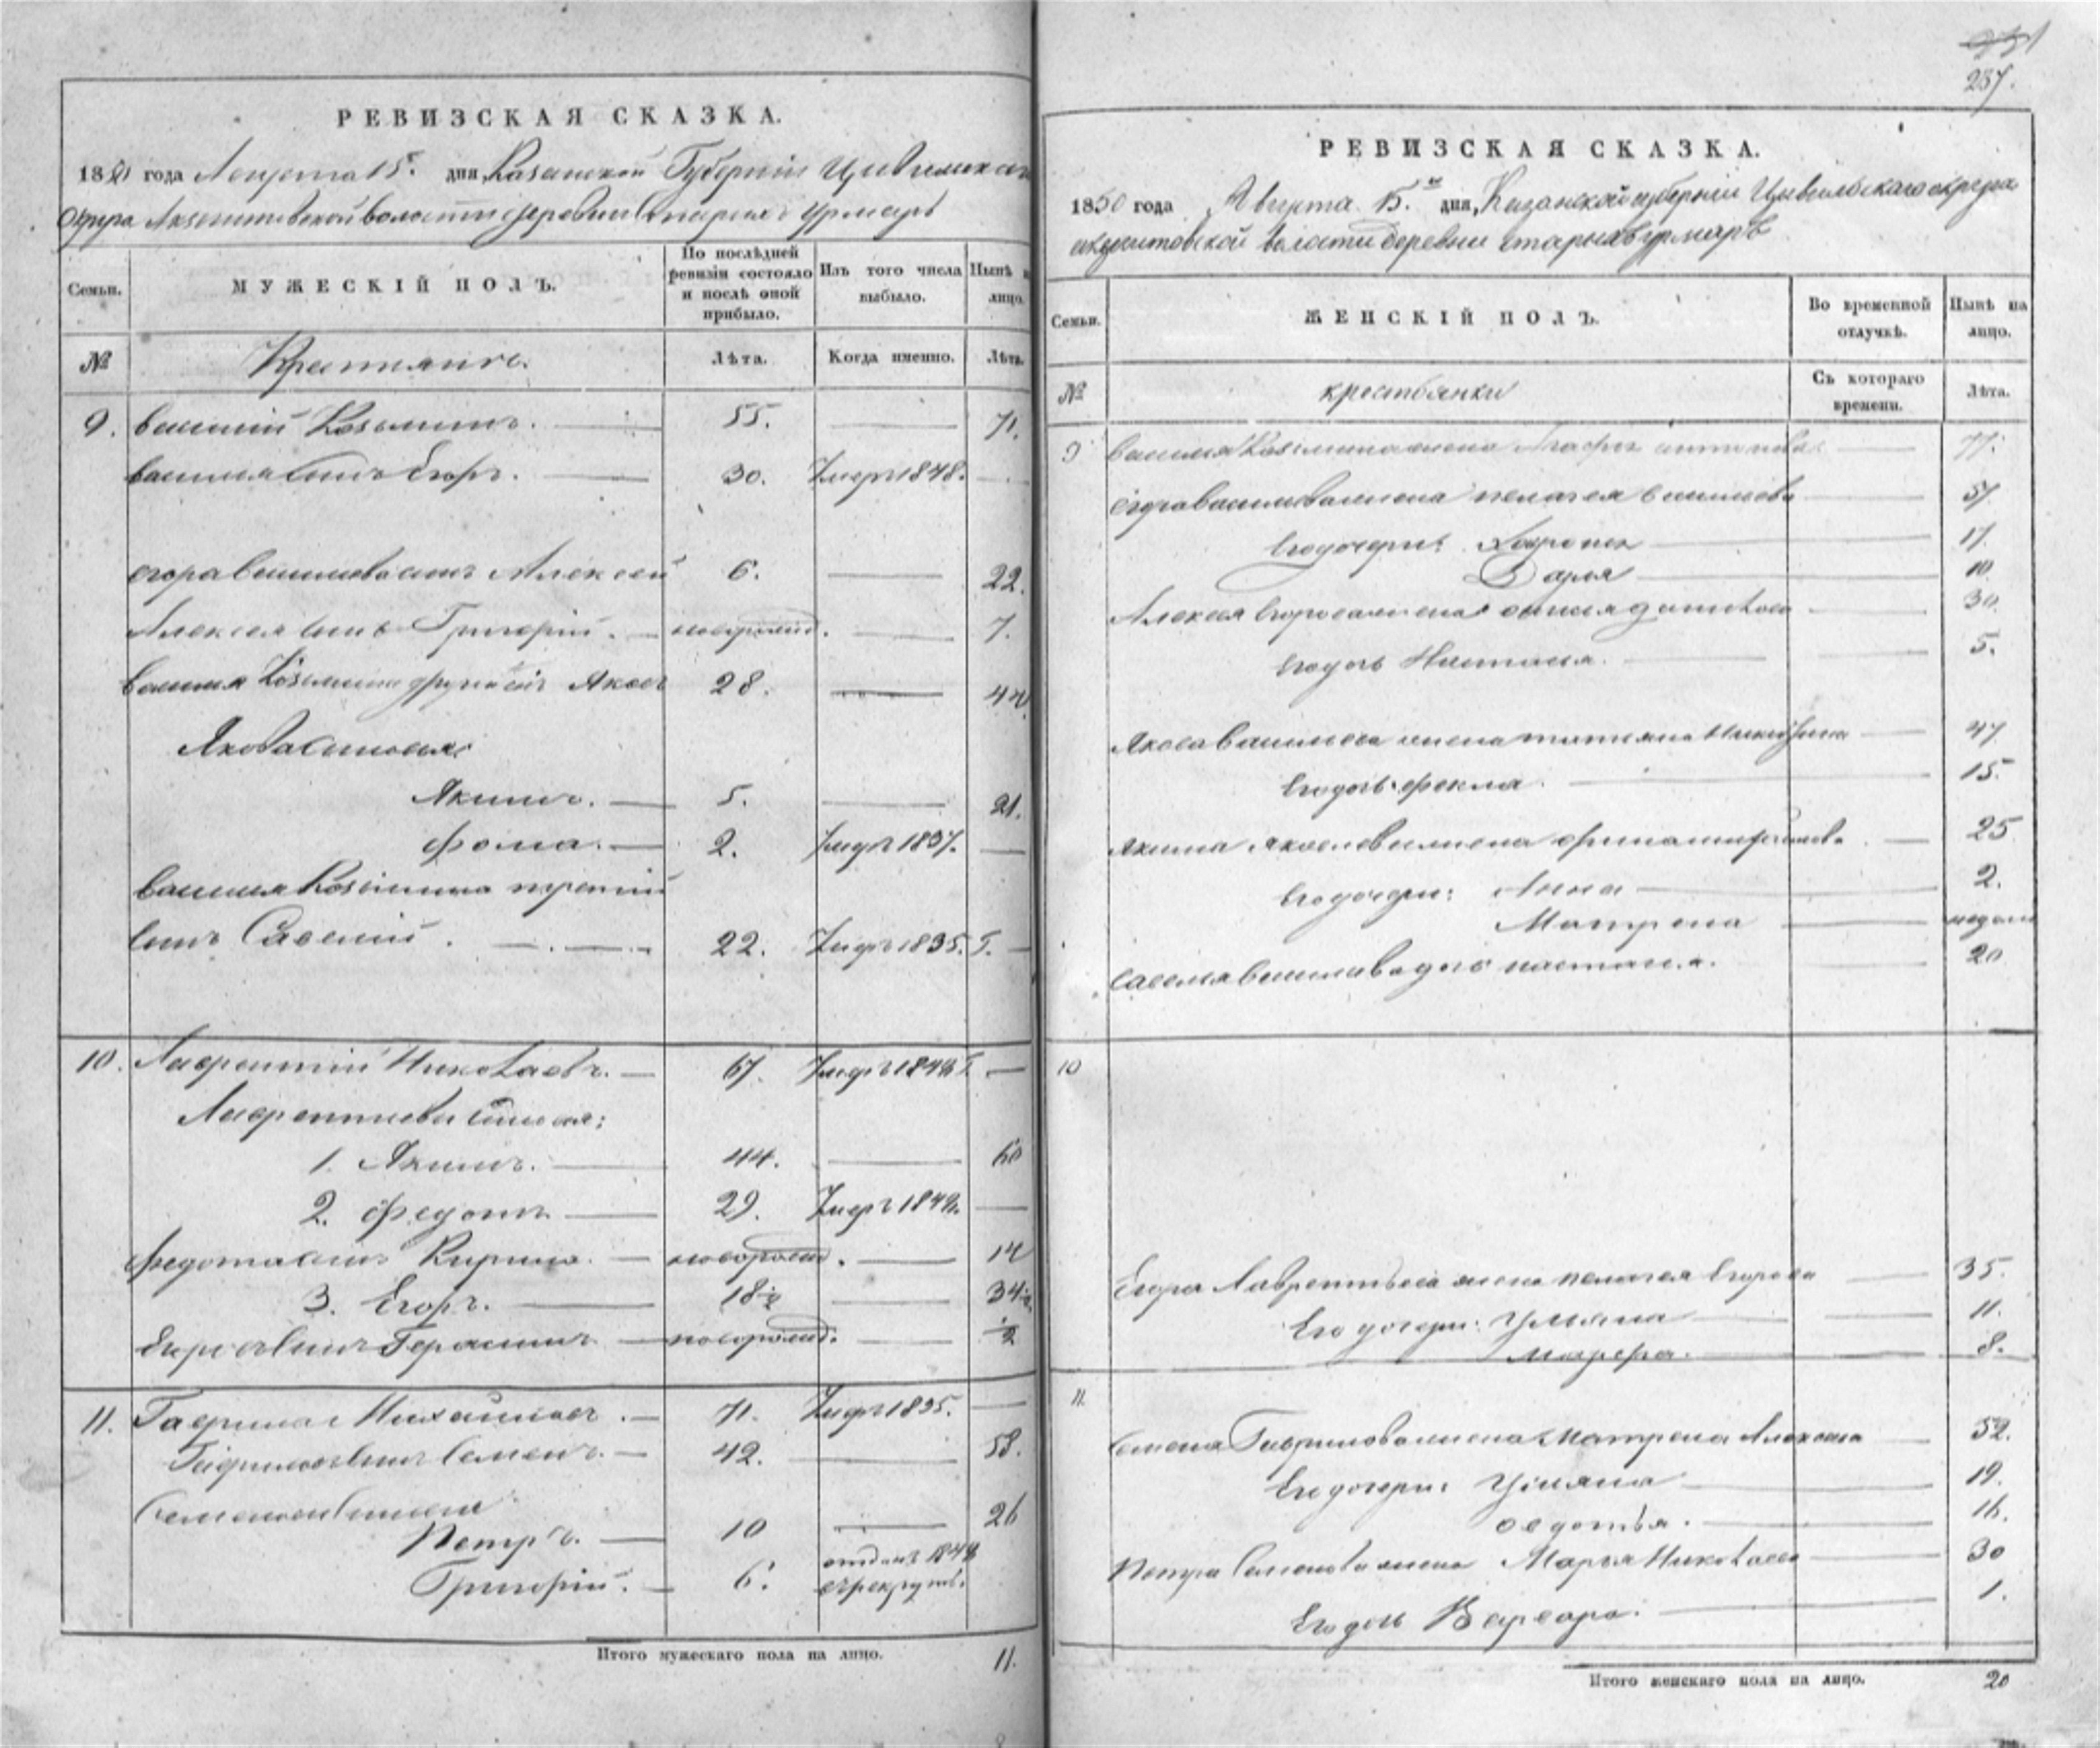 РЕВИЗСКАЯ СКАЗКА.
1850 года Августа 15. дня, Казанской Губернiи Цивильскаго
Округа волости деревни Старыхъ Урмаръ
Семьи.
МУЖЕСКIЙ ПОЛЪ.
По послѣдней ревизiи состояло и послѣ оной прибыло.
Изъ того числа выбыло.
Нынѣ на лицо.
№
Крестьяне.
Лѣта.
Когда именно.
Лѣта.
9. Василiй Козьминъ. 55. 71.
Василья сынъ Егоръ. 30. Умеръ 1848.
Егора Васильева сынъ Алексѣй 6. 22.
Алексѣя сынъ Григорiй. новорожд. 7.
Василья Козьмина другой сынъ Яковъ 28. 44
Якова сыновья:
Якимъ. 5. 21.
Фома. 2. Умеръ 1837.
Василья Козьмина третiй
сынъ Савелiй. 22. Умеръ 1835. Г.
10. Лаврентiй Николаевъ. 67. Умеръ 1844 Г.
Лаврентьевы сыновья:
1. Якимъ. 44. 60
2. Федотъ 29. Умеръ 1849.
Федота сынъ Кирила. новорожд. 14
3. Егоръ. 18½ 34½
Егоровъ сынъ Герасимъ новорожд. ½
11. Гаврила Михайловъ. 71. Умеръ 1835.
Гавриловъ сынъ Семенъ. 42. 58.
Семеновы сыновья
Петръ. 10 26
Григорiй. 6. отданъ 184
въ рекруты.
Итого мужескаго пола на лицо. 11.
237.
РЕВИЗСКАЯ СКАЗКА.
1850 года Августа 15. дня, Казанской губернiи Цивильскаго округа
волости деревни старыхъ урмаръ
Семьи.
ЖЕНСКIЙ ПОЛЪ.
Во временной отлучкѣ.
Нынѣ на лицо.
№
крестьянки
Съ котораго времени.
Лѣта.
9 Василья Козьмина жена Агафья 77.
Егора Васильева жена пелагея Васильева 57
Его дочери: 17
Дарья 10
Алексѣя Егорова жена 30
Его дочь Настасья. 5.
Якова Васильева жена татьяна Никифорова 47
Его дочь фекла 15.
Якима Яковлева жена 25
Его дочери: Анна 2.
Матрена недели
Савелья Васильева дочь настасья. 20
10
Егора Лаврентьева жена пелагея Егорова 35.
Его дочери: Ульяна 11.
Марфа. 8.
11.
Семена Гаврилова жена Матрена Алексѣева 52.
Его дочери: Ульяна 19.
федотья. 16.
Петра Семенова жена Марья Николаева 30
Его дочь Варвара. 1.
Итого женскаго пола на лицо. 20